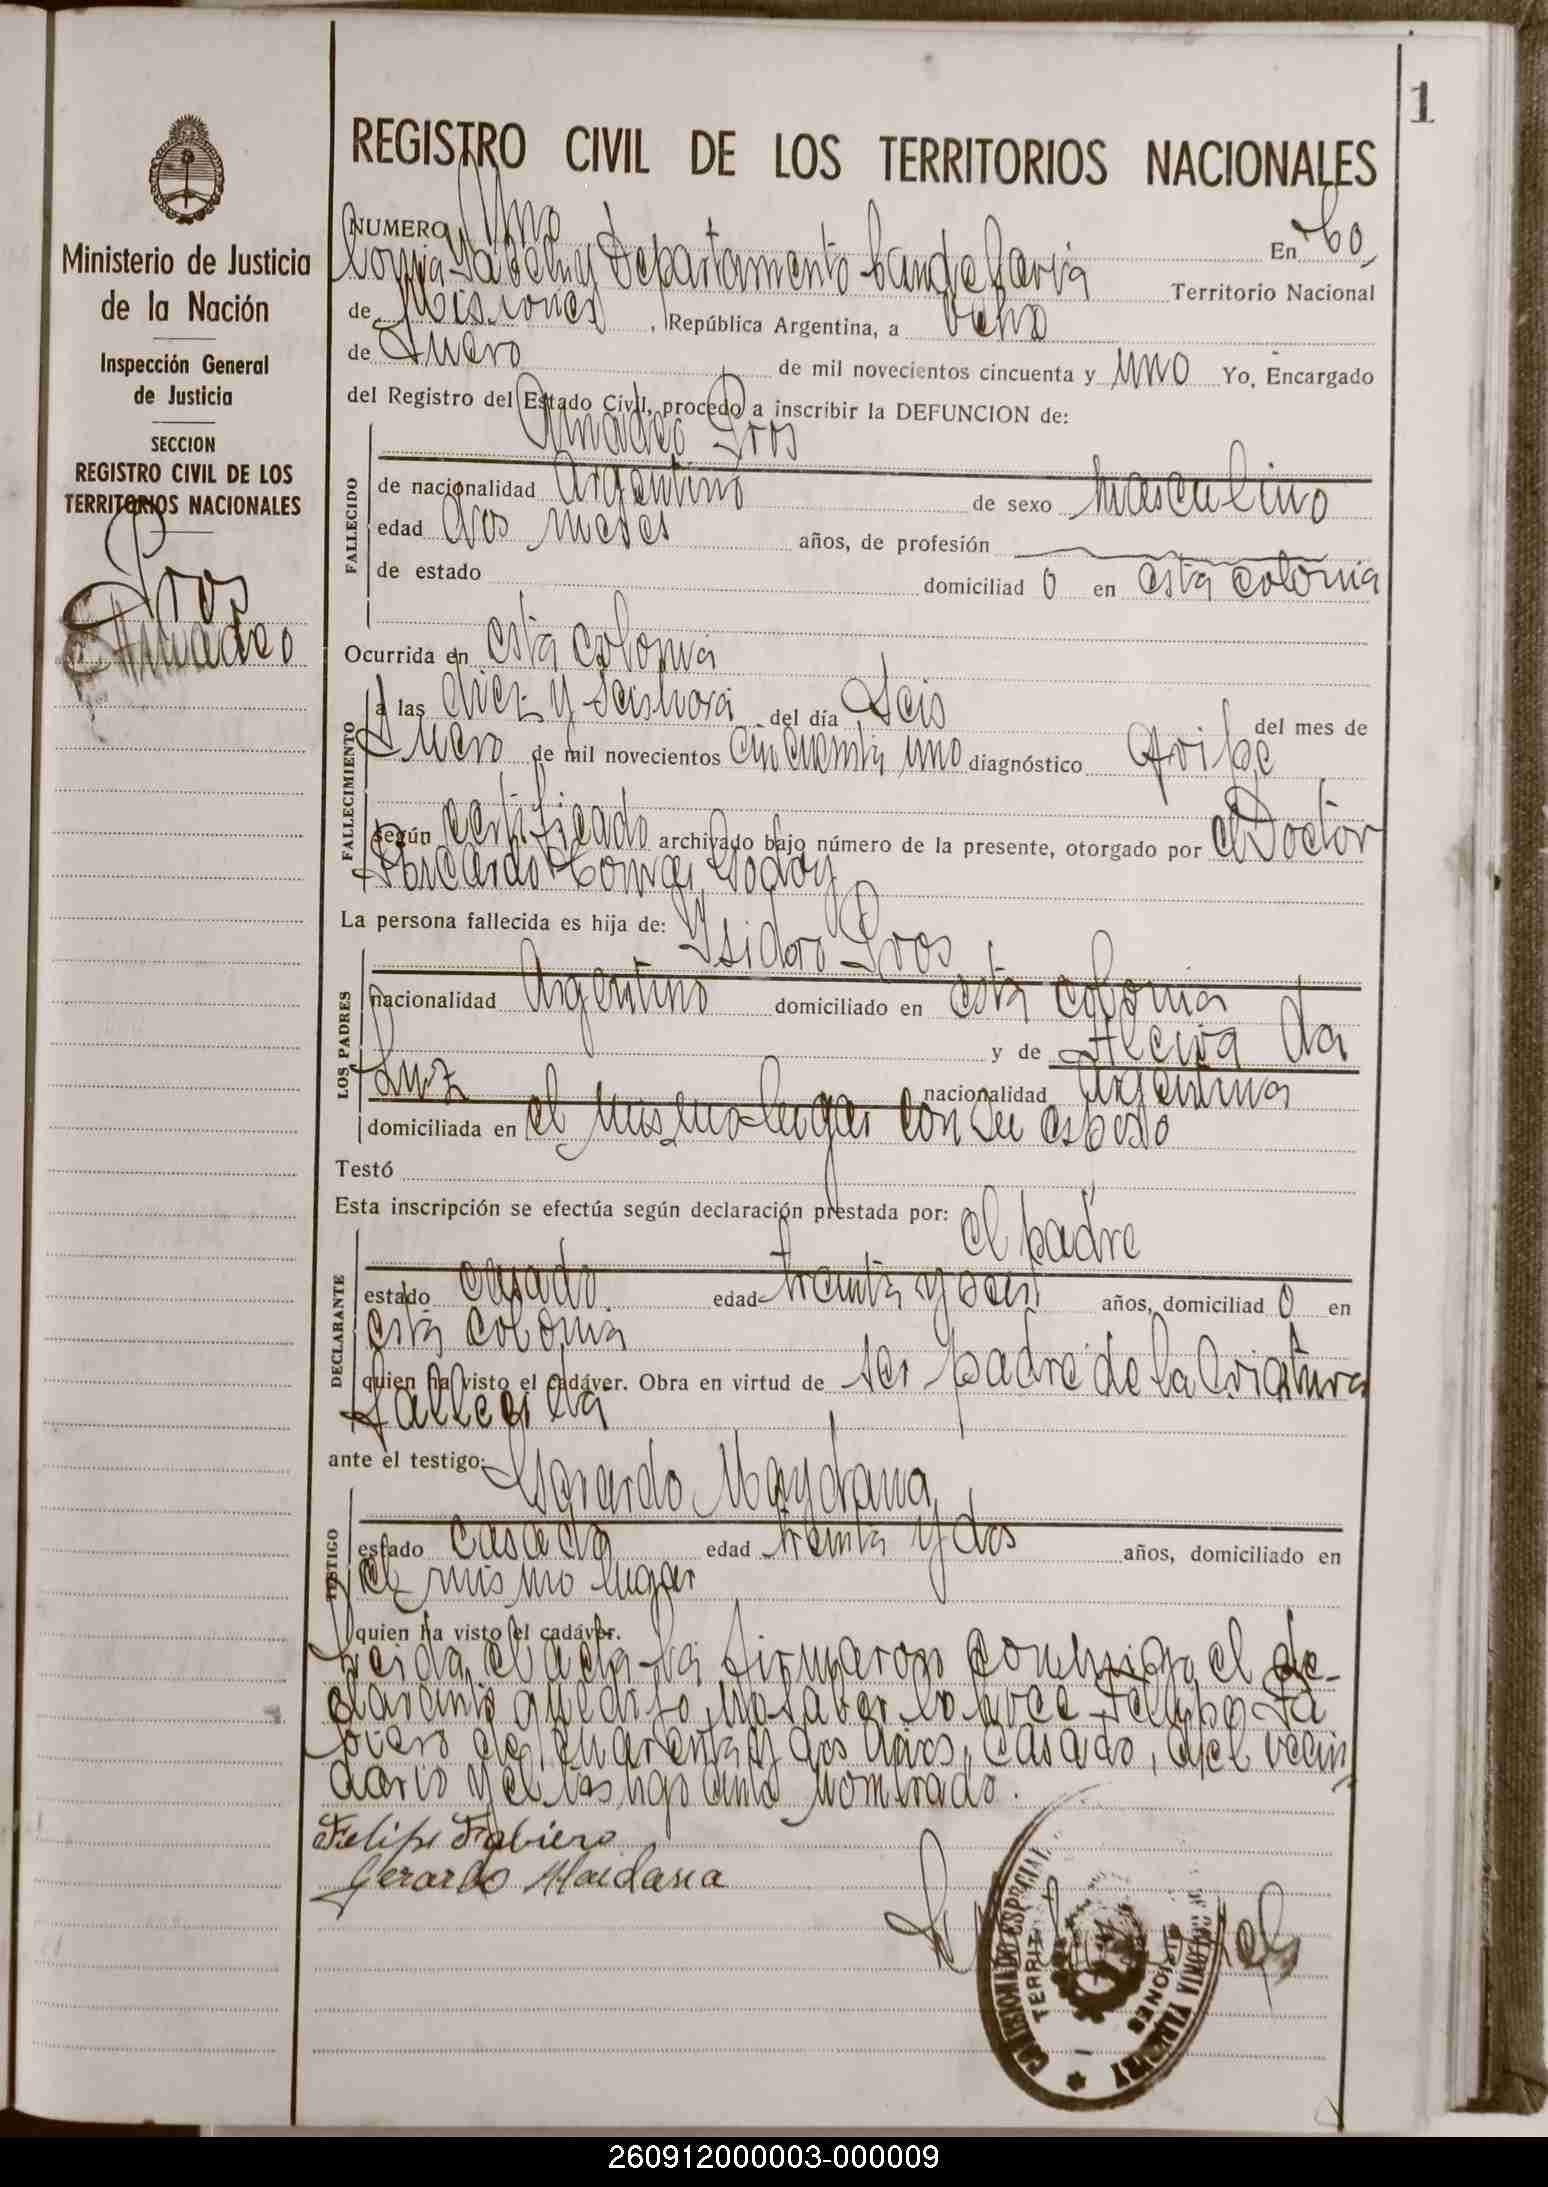 1
Ministerio de Justicia
de la Nación
Inspección General
de Justicia
SECCION
REGISTRO CIVIL DE LOS
TERRITORIOS NACIONALES
Pros
Amadeo
REGISTRO CIVIL DE LOS TERRITORIOS NACIONALES
NUMERO Uno En Co
lonia Departamento Candelaria Territorio Nacional
de Misiones, República Argentina, a ocho
de Enero de mil novecientos cincuenta y uno Yo, Encargado
del Registro del Estado Civil, procedo a inscribir la DEFUNCION de:
Amadeo Pros
FALLECIDO
de nacionalidad Argentino de sexo masculino
edad dos meses años, de profesión
de estado domiciliad o en esta colonia
Ocurrida en esta colonia
FALLECIMIENTO
a las diez y seis hora del día Seis del mes de
Enero de mil novecientos cincuenta uno diagnóstico Gripe
según certificado archivado bajo número de la presente, otorgado por el Doctor
Ricardo Godoy
La persona fallecida es hija de: Isidoro Pros
LOS PADRES
nacionalidad Argentino domiciliado en esta colonia
y de da
Luz nacionalidad Argentina
domiciliada en el mismo lugar con su esposo
Testó
Esta inscripción se efectúa según declaración prestada por: el padre
DECLARANTE
estado casado edad treinta y seis años, domiciliad o en
esta colonia
quien ha visto el cadáver. Obra en virtud de ser padre de la criatura
fallecida
ante el testigo: Gerardo Maydana
TESTIGO
estado casado edad treinta y dos años, domiciliado en
el mismo lugar
quien ha visto el cadáver.
Leida el acta la firmaron conmigo el de-
clarante que dijo no saber lo hace Felipe Fa
biero de cuarenta y dos años, casado, del vecin
dario y el testigo antes nombrado.
Felipe Fabiero
Gerardo Maidana
COMISIONADO ESPECIAL
TERRIT
MISIONES
260912000003-000009